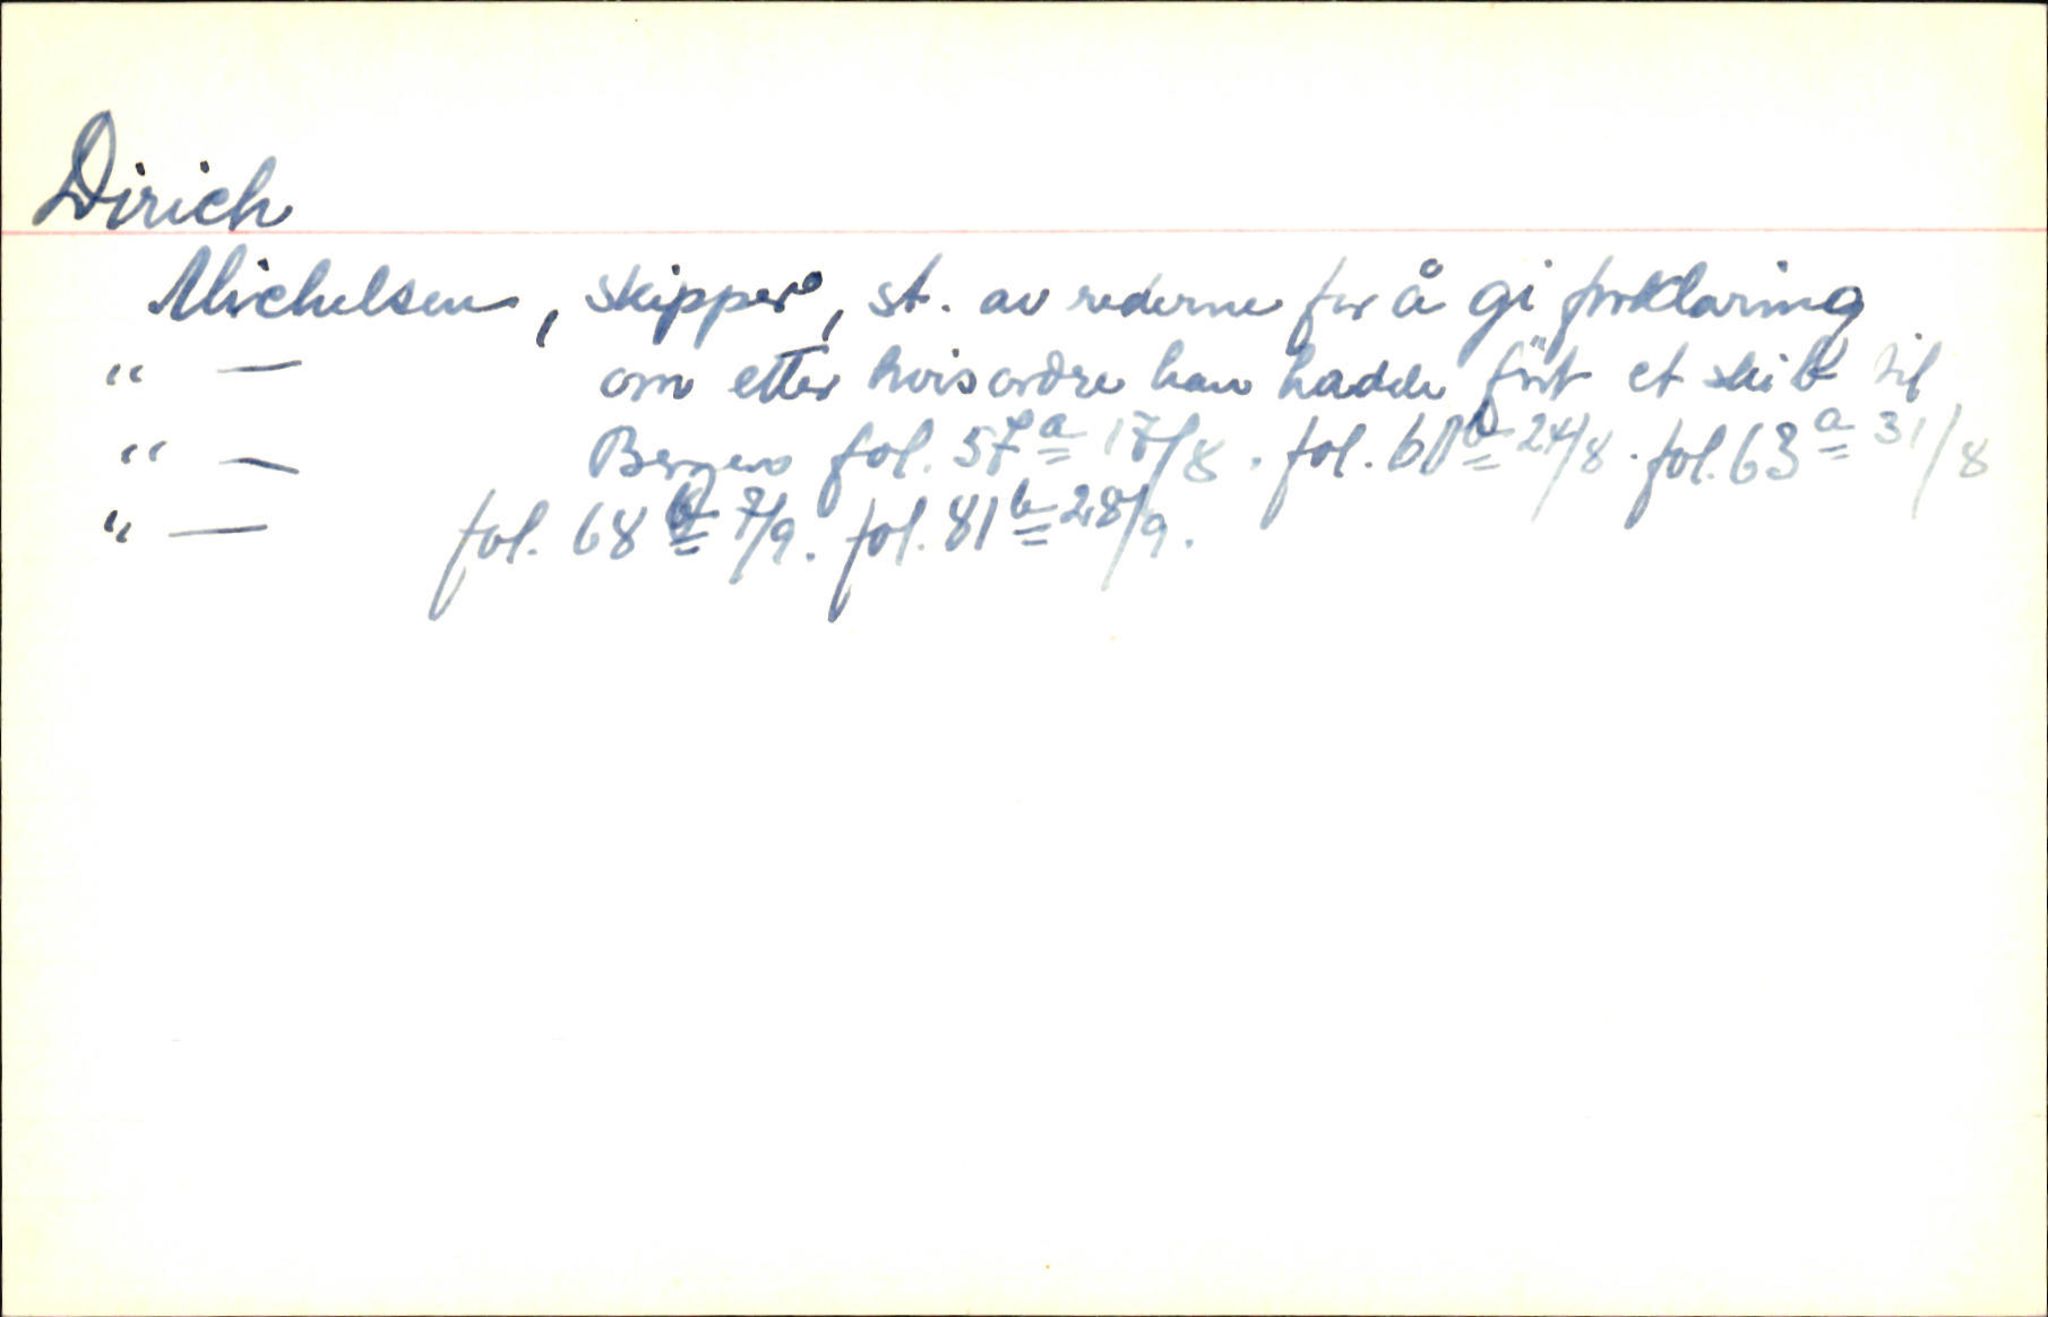 Dirich
Michelsen, skipper, st. av rederne for å gi forklaring
" — om etter hvis ordre han hadde fört et skib til
" — Bergen fol. 57a 17/8. fol. 60b 24/8. fol. 63a 31/8
" — fol. 68b 7/9. fol. 81b 28/9.